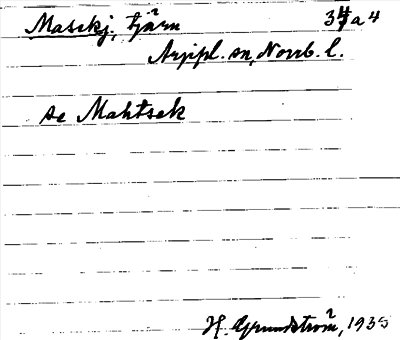 Masekj, tjärn 34a4
Arjepl. sn, Norrb. l.
se Mahtsek
H. Grundström, 1935